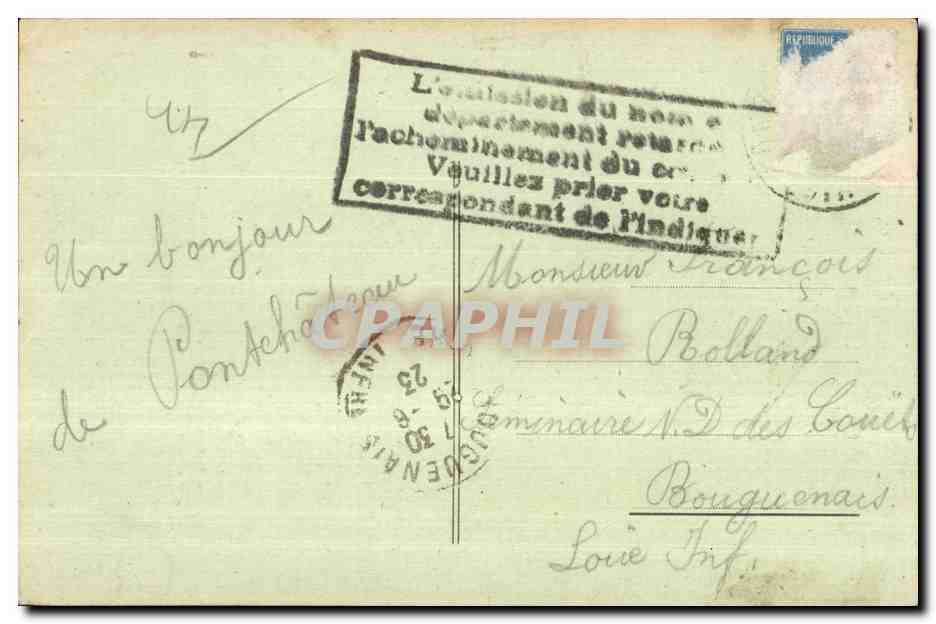 RÉPUBLIQUE
L'omission du nom
département retarde
l'acheminement du
Veuillez prier votre
correspondant de l'indiquer
Un bonjour
de Pontchâteau
CPAPHIL
Monsieur François
Rolland
Séminaire N.D des Couëts
Bouguenais.
Loire Inf.
BOUGUENAIS
INFRE
23
30